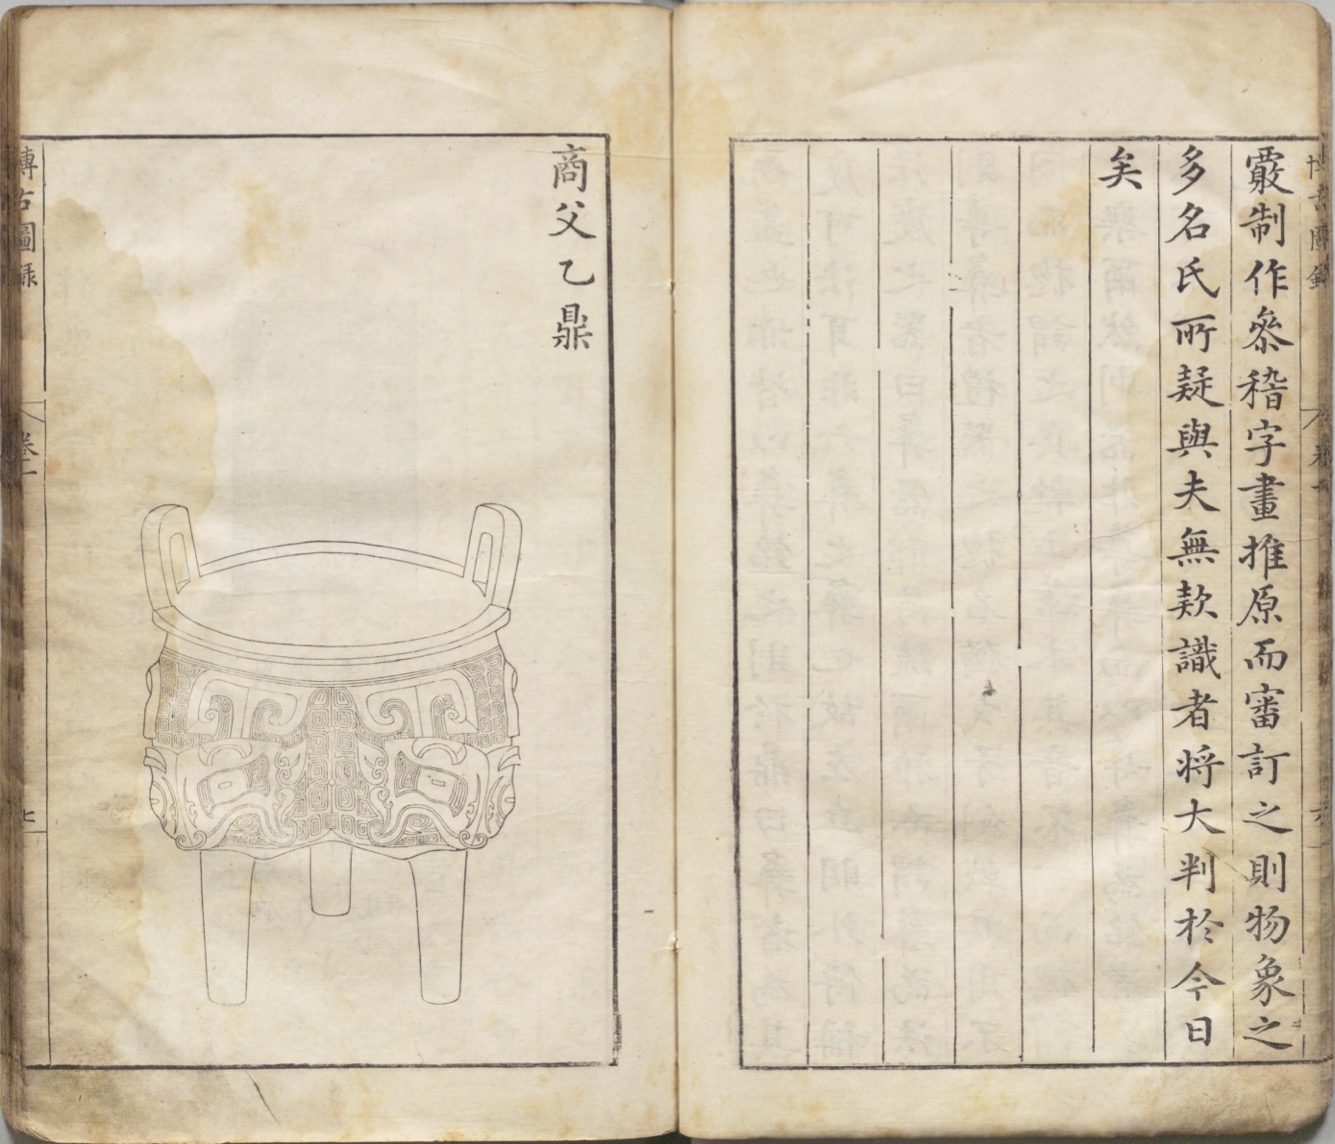 覈制作參稽字畫推原而審訂之則物象之
多名氏所疑與夫無款識者將大判於今日
矣
商父乙鼎
博古圖録
卷一
七